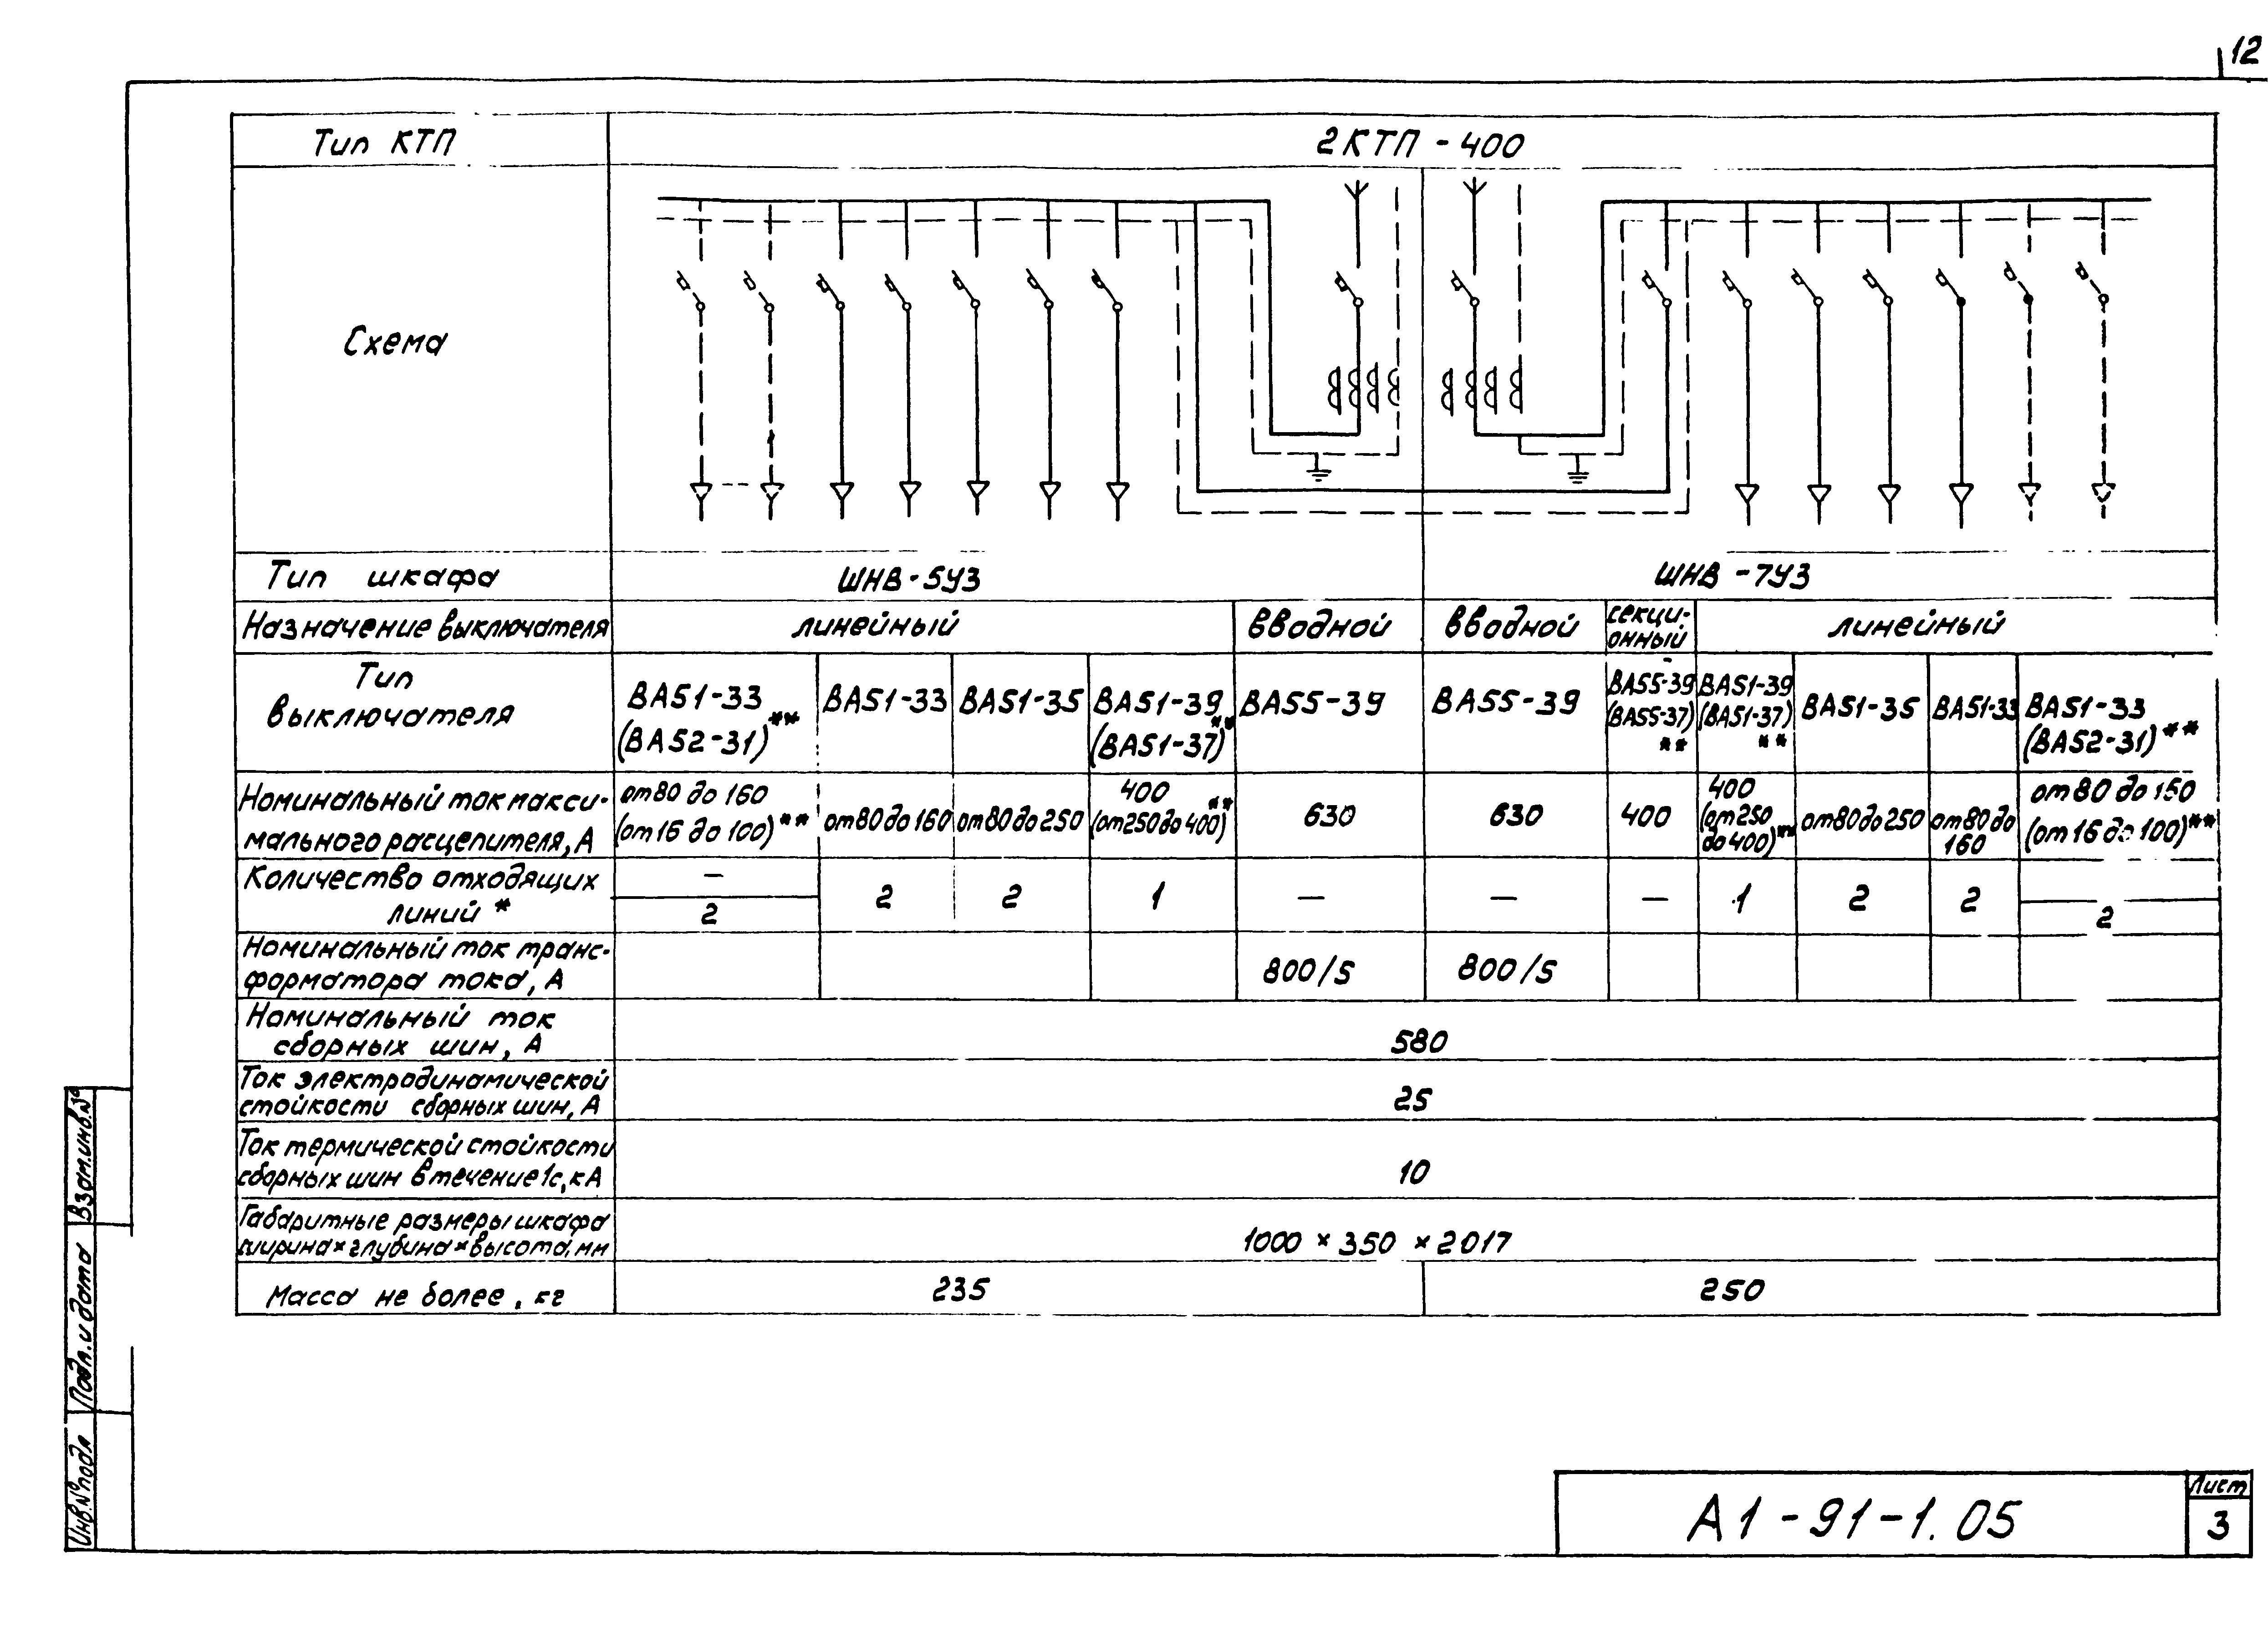 12
Тип КТП
2КТП - 400
Схема
Тип шкафа
ШНВ-5У3
ШНВ-7У3
Назначение выключателя
линейный
вводной
вводной
секци-
онный
линейный
Тип
выключателя
ВА51-33
(ВА52-31)**
ВА51-33
ВА51-35
ВА51-39
(ВА51-37)**
ВА55-39
ВА55-39
ВА55-39
(ВА55-37)
**
ВА51-39
(ВА51-37)
**
ВА51-35
ВА51-33
ВА51-33
(ВА52-31)**
Номинальный ток макси-
мального расцепителя, А
от 80 до 160
(от 16 до 100)**
от 80 до 160
от 80 до 250
400
(от 250 до 400)**
630
630
400
400
(от 250
до 400)**
от 80 до 250
от 80 до
160
от 80 до 160
(от 16 до 100)**
Количество отходящих
линий *
—
2
2
2
1
—
—
—
1
2
2
2
Номинальный ток транс-
форматора тока, А
800/5
800/5
Номинальный ток
сборных шин, А
580
Ток электродинамической
стойкости сборных шин, А
25
Ток термической стойкости
сборных шин в течение 1с, кА
10
Габаритные размеры шкафа
ширина×глубина×высота, мм
1000 × 350 × 2017
Масса не более, кг
235
250
Взам.инв.№
Подп. и дата
Инв.№ подл
А1-91-1.05
Лист
3